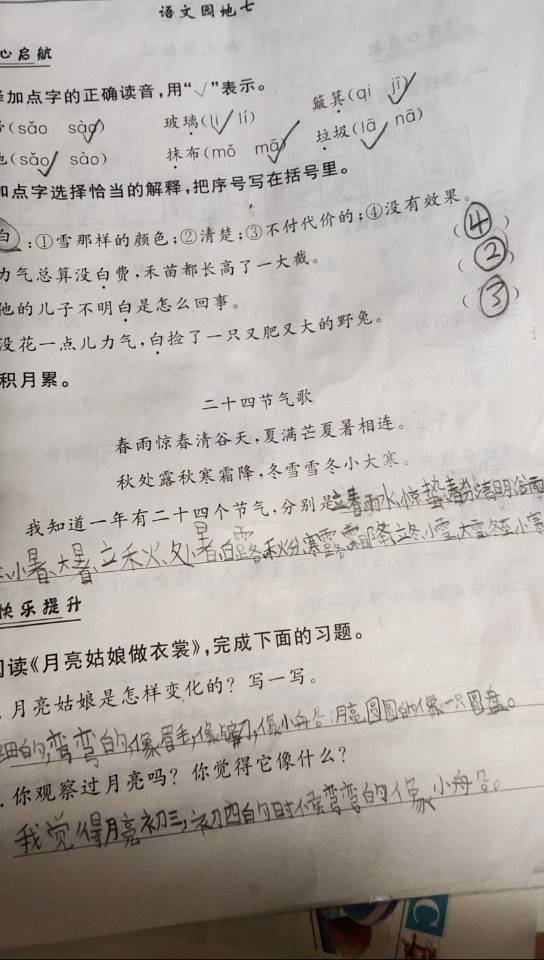 语文园地七
心启航
加点字的正确读音,用“√”表示。
(sǎo sào) 玻璃(li lí) 簸箕(qi jī)
(sǎo sào) 抹布(mǒ mā) 垃圾(lā nā)
加点字选择恰当的解释,把序号写在括号里。
白:①雪那样的颜色;②清楚;③不付代价的;④没有效果。
力气总算没白费,禾苗都长高了一大截。 (④)
他的儿子不明白是怎么回事。 (②)
没花一点儿力气,白捡了一只又肥又大的野兔。 (③)
积月累。
二十四节气歌
春雨惊春清谷天,夏满芒夏暑相连。
秋处露秋寒霜降,冬雪雪冬小大寒。
我知道一年有二十四个节气,分别是立春雨水,惊蛰春分清明谷雨
小暑、大暑、立秋、处暑白露秋分、寒露、霜降立冬、小雪、大雪、冬至、小寒
快乐提升
读《月亮姑娘做衣裳》,完成下面的习题。
月亮姑娘是怎样变化的?写一写。
细的,弯弯的像眉毛,像镰刀,像小船;月亮圆圆的像一只圆盘。
你观察过月亮吗?你觉得它像什么?
我觉得月亮初三,初四的时候弯弯的像小船。
C